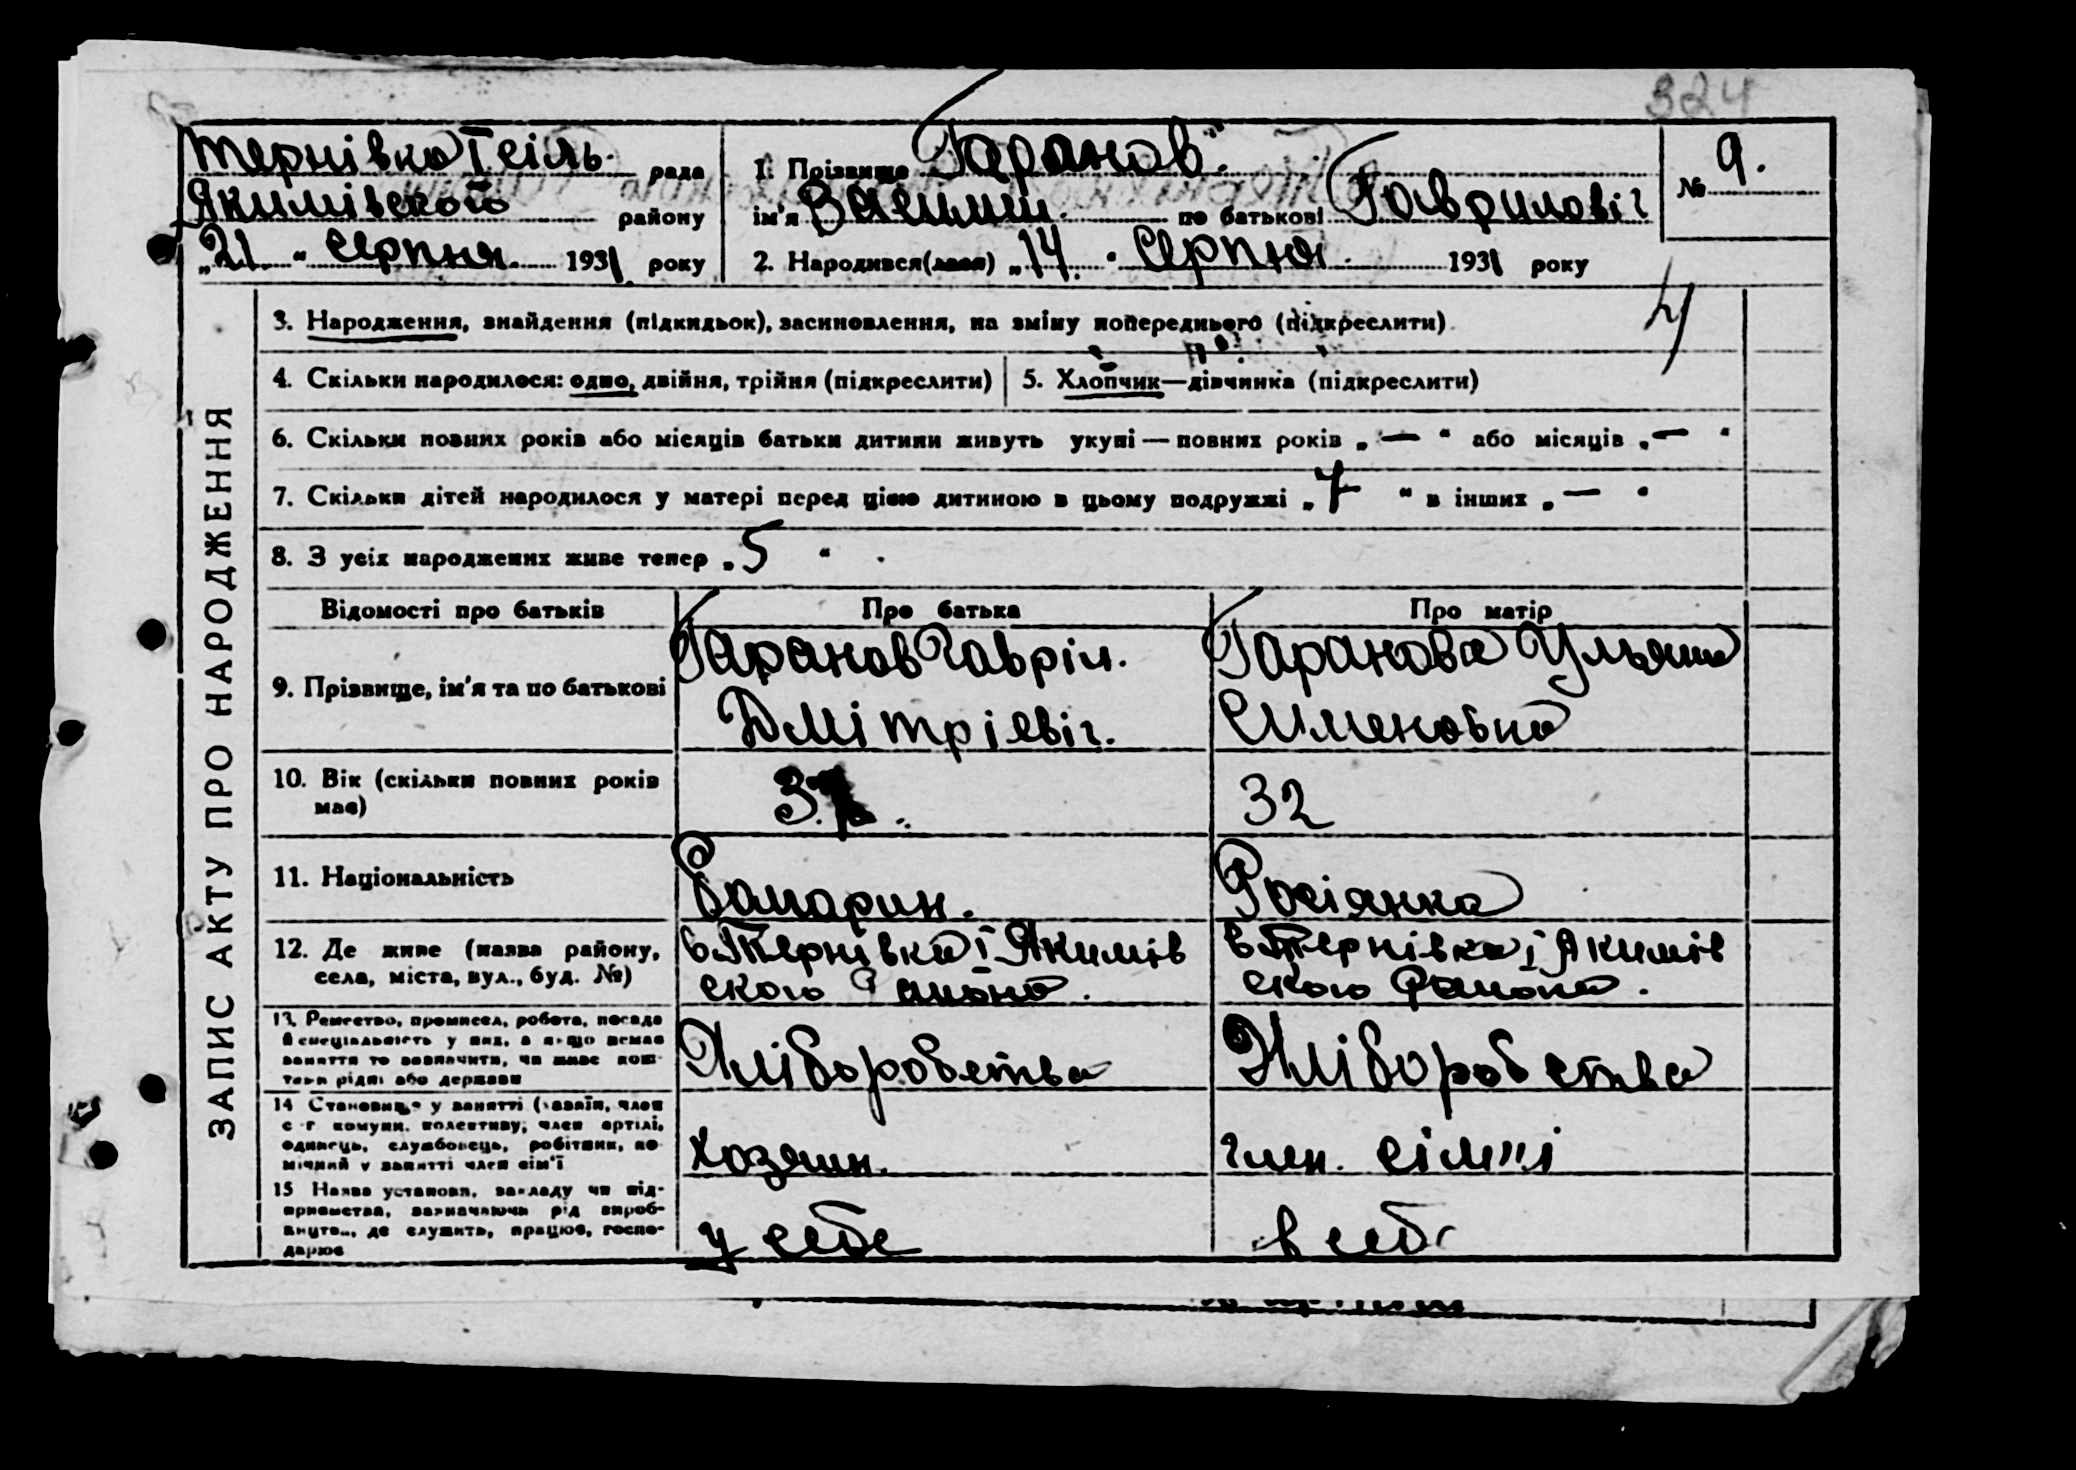 324
Тернівка І сіль. рада
1. Прізвище Гаранов.
№ 9.
Якимівського району
ім'я Василий. по батькові Гавриловіч
„21“ Серпня. 1931 року
2. Народився(лася) „14.“ Серпня. 1931 року
ЗАПИС АКТУ ПРО НАРОДЖЕННЯ
3. Народження, знайдення (підкидьок), засиновлення, на зміну попереднього (підкреслити).
4. Скільки народилося: одно, двійня, трійня (підкреслити)
5. Хлопчик—дівчинка (підкреслити)
6. Скільки повних років або місяців батьки дитини живуть укупі — повних років „—“ або місяців „—“
7. Скільки дітей народилося у матері перед цією дитиною в цьому подружжі „7“ в інших „—“
8. З усіх народжених живе тепер „5“.
Відомості про батьків
Про батька
Про матір
9. Прізвище, ім'я та по батькові
Гаранов Гавріл.
Дмітріевіч.
Гаранова Ульяна
Сименовна
10. Вік (скільки повних років
має)
32
11. Національність
Росіянка
12. Де живе (назва району,
села, міста, вул., буд. №)
в Тернівка І Якимів
ского Району.
в Тернівка І Якимів
ского Району.
13. Ремество, промисел, робота, посада
й спеціяльність у них, а якщо немає
заняття то зазначити, чи живе кош-
том рідні або держави
Хліборобства
Хліборобства
14 Становище у занятті (хазяїн, член
с-г комуни, колективу; член артілі,
одинець, службовець, робітник, по-
мічний у занятті член сім'ї
Хозяин.
член. сім"і
15 Назва установи, закладу чи під-
приємства, зазначаючи рід вироб-
ництва, де служить, працює, госпо-
дарює
у себе
в себе